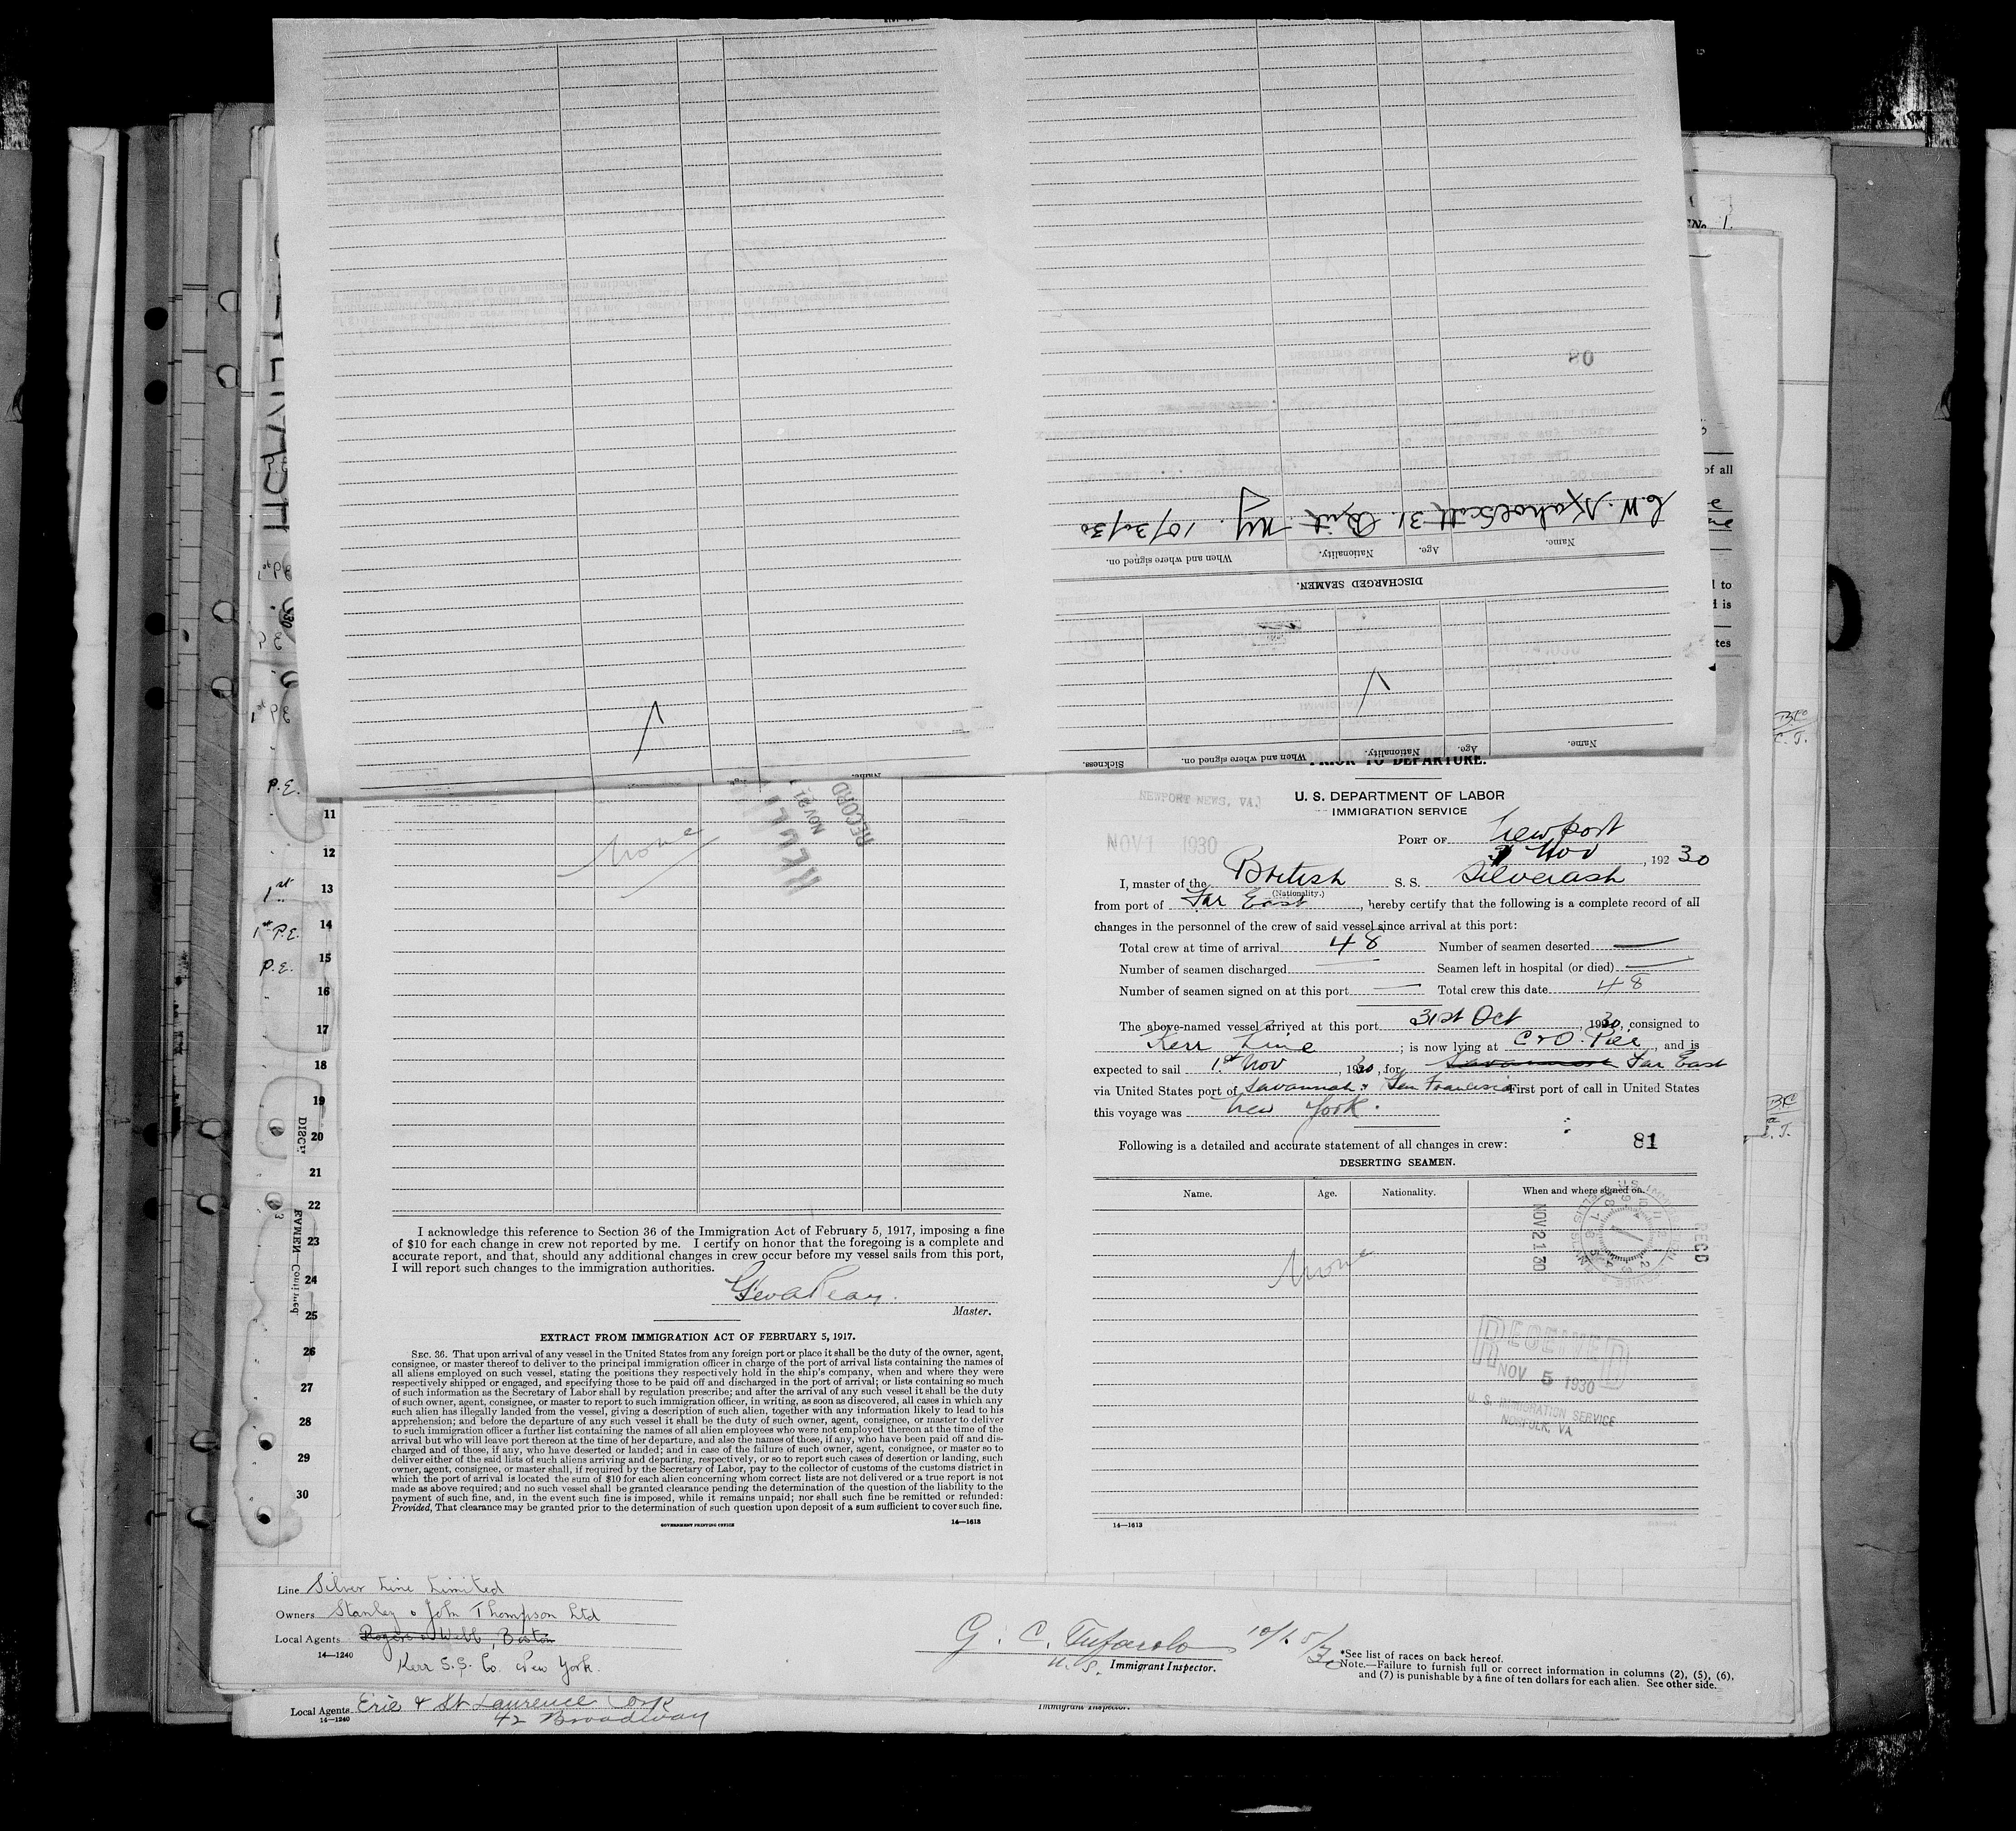 C.W.
31
Brit
N.Y.
10/30/30
Name.
Age.
Nationality.
When and where signed on.
DISCHARGED SEAMEN.
Name.
Age.
Nationality.
When and where signed on.
Sickness.
No. 1.
of all
P.E.
1st
1st P.E.
P.E.
11
12
13
14
15
16
17
18
19
20
21
22
23
24
25
26
27
28
29
30
RECORD
NOV 21
None
I acknowledge this reference to Section 36 of the Immigration Act of February 5, 1917, imposing a fine
of $10 for each change in crew not reported by me. I certify on honor that the foregoing is a complete and
accurate report, and that, should any additional changes in crew occur before my vessel sails from this port,
I will report such changes to the immigration authorities.
Master.
EXTRACT FROM IMMIGRATION ACT OF FEBRUARY 5, 1917.
SEC. 36. That upon arrival of any vessel in the United States from any foreign port or place it shall be the duty of the owner, agent,
consignee, or master thereof to deliver to the principal immigration officer in charge of the port of arrival lists containing the names of
all aliens employed on such vessel, stating the positions they respectively hold in the ship's company, when and where they were
respectively shipped or engaged, and specifying those to be paid off and discharged in the port of arrival; or lists containing so much
of such information as the Secretary of Labor shall by regulation prescribe; and after the arrival of any such vessel it shall be the duty
of such owner, agent, consignee, or master to report to such immigration officer, in writing, as soon as discovered, all cases in which any
such alien has illegally landed from the vessel, giving a description of such alien, together with any information likely to lead to his
apprehension; and before the departure of any such vessel it shall be the duty of such owner, agent, consignee, or master to deliver
to such immigration officer a further list containing the names of all alien employees who were not employed thereon at the time of the
arrival but who will leave port thereon at the time of her departure, and also the names of those, if any, who have been paid off and dis-
charged and of those, if any, who have deserted or landed; and in case of the failure of such owner, agent, consignee, or master so to
deliver either of the said lists of such aliens arriving and departing, respectively, or so to report such cases of desertion or landing, such
owner, agent, consignee, or master shall, if required by the Secretary of Labor, pay to the collector of customs of the customs district in
which the port of arrival is located the sum of $10 for each alien concerning whom correct lists are not delivered or a true report is not
made as above required; and no such vessel shall be granted clearance pending the determination of the question of the liability to the
payment of such fine, and, in the event such fine is imposed, while it remains unpaid; nor shall such fine be remitted or refunded:
Provided, That clearance may be granted prior to the determination of such question upon deposit of a sum sufficient to cover such fine.
GOVERNMENT PRINTING OFFICE
14—1613
PRIOR TO DEPARTURE.
NEWPORT NEWS, VA.
U. S. DEPARTMENT OF LABOR
IMMIGRATION SERVICE
NOV 1 1930
PORT OF Newport
1 Nov, 192 30
I, master of the British S. S. Silverash
(Nationality.)
from port of Far East, hereby certify that the following is a complete record of all
changes in the personnel of the crew of said vessel since arrival at this port:
Total crew at time of arrival 48 Number of seamen deserted —
Number of seamen discharged — Seamen left in hospital (or died) —
Number of seamen signed on at this port — Total crew this date 48
The above-named vessel arrived at this port 31st Oct, 1930, consigned to
Kerr Line; is now lying at C & O. Pier, and is
expected to sail 1st Nov, 1930, for Savannah Far East
via United States port of Savannah & San Francisco First port of call in United States
this voyage was New York.
Following is a detailed and accurate statement of all changes in crew:
81
DESERTING SEAMEN.
Name. Age. Nationality. When and where signed on.
None
NOV 21 30
RECD
RECEIVED
NOV 5 1930
U. S. IMMIGRATION SERVICE
NORFOLK, VA
14—1613
Line Silver Line Limited
Owners Stanley & John Thompson Ltd
Local Agents Rogers & Webb, Boston
14—1240
Kerr S.S. Co. New York.
G. C. Tufarolo
U.S. Immigrant Inspector.
*See list of races on back hereof.
Note.—Failure to furnish full or correct information in columns (2), (5), (6),
and (7) is punishable by a fine of ten dollars for each alien. See other side.
Local Agents Erie & St Laurence Corp
14—1240
42 Broadway
Immigrant Inspector.